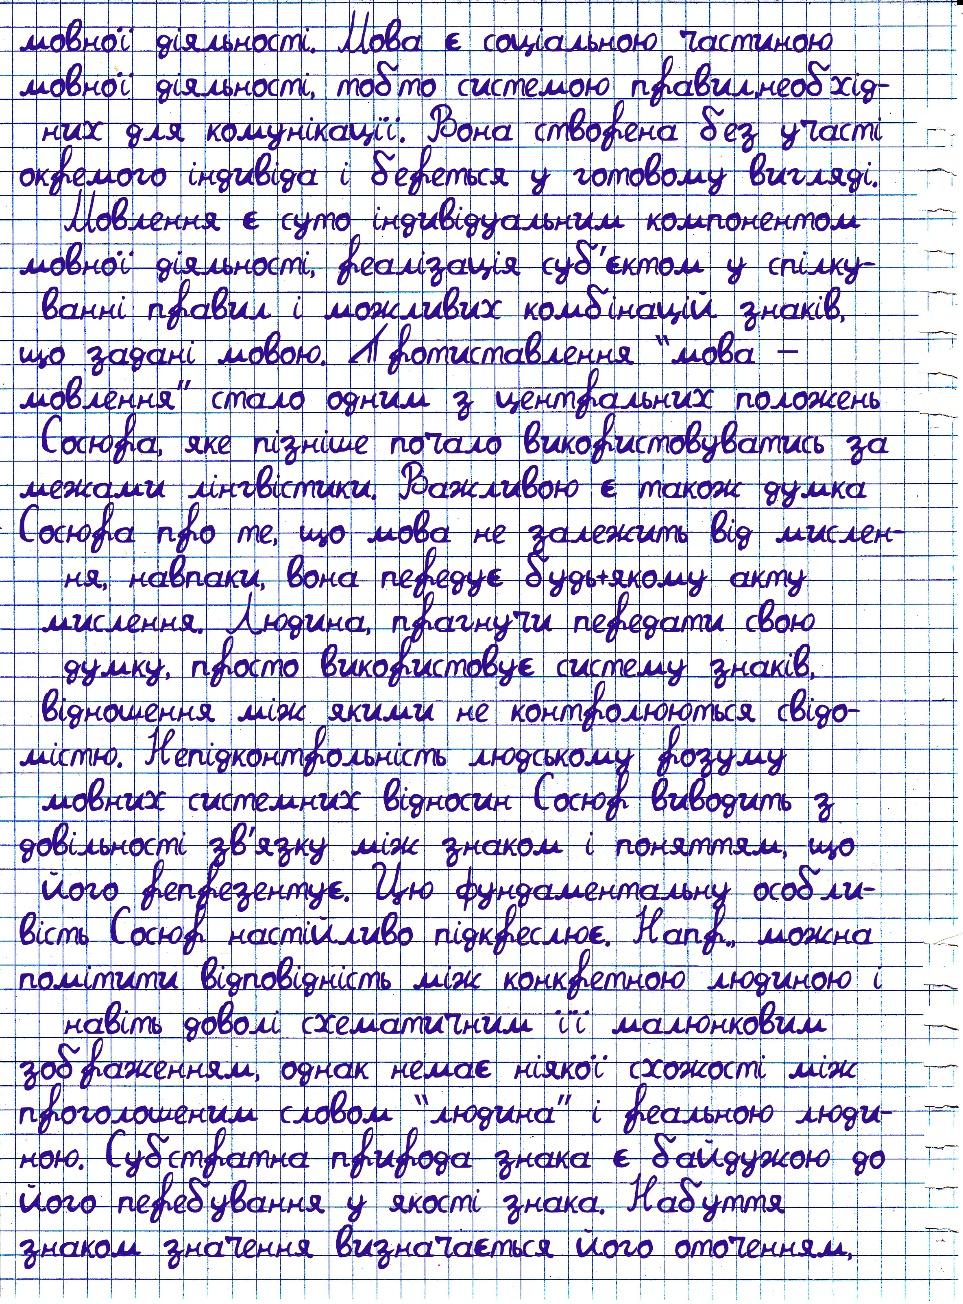 мовної діяльності. Мова є соціальною частиною
мовної діяльності, тобто системою правил,необхід-
них для комунікації. Вона створена без участі
окремого індивіда і береться у готовому вигляді.
Мовлення є суто індивідуальним компонентом
мовної діяльності, реалізація суб'єктом у спілку-
ванні правил і можливих комбінацій знаків,
що задані мовою. Протиставлення "мова –
мовлення" стало одним з центральних положень
Сосюра, яке пізніше почало використовуватись за
межами лінгвістики. Важливою є також думка
Сосюра про те, що мова не залежить від мислен-
ня, навпаки, вона передує будь+якому акту
мислення. Людина, прагнучи передати свою
думку, просто використовує систему знаків,
відношення між якими не контролюються свідо-
містю. Непідконтрольність людському розуму
мовних системних відносин Сосюр виводить з
довільності зв'язку між знаком і поняттям, що
його репрезентує. Цю фундаментальну особли-
вість Сосюр настійливо підкреслює. Напр., можна
помітити відповідність між конкретною людиною і
навіть доволі схематичним її малюнковим
зображенням, однак немає ніякої схожості між
проголошеним словом "людина" і реальною люди-
ною. Субстратна природа знака є байдужою до
його перебування у якості знака. Набуття
знаком значення визначається його оточенням,